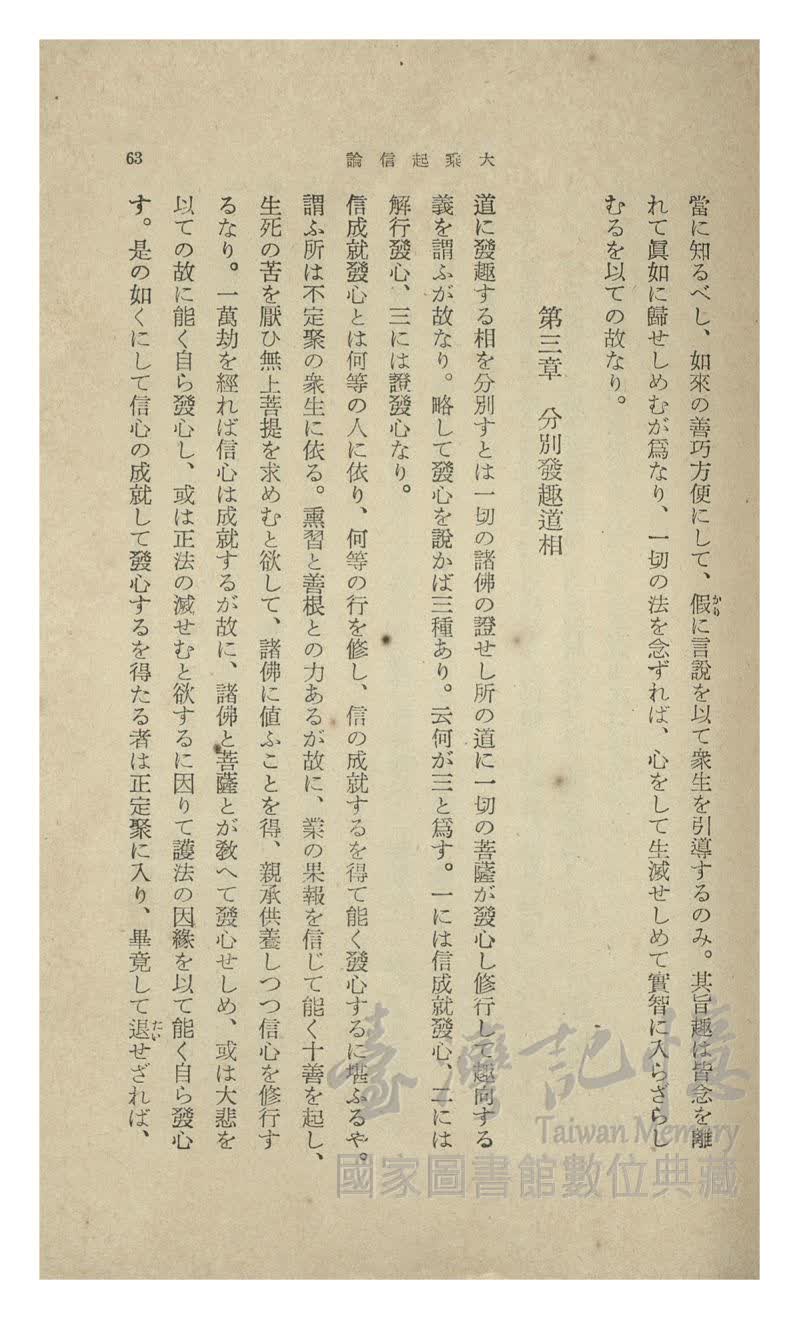 大乘起信論
63
當に知るべし、如來の善巧方便にして、假に言說を以て衆生を引導するのみ。其旨趣は皆念を離
かり
れて眞如に歸せしめむが爲なり、一切の法を念ずれば、心をして生滅せしめて實智に入らざらし
むるを以ての故なり。
第三章 分別發趣道相
道に發趣する相を分別すとは一切の諸佛の證せし所の道に一切の菩薩が發心し修行して趣向する
義を謂ふが故なり。略して發心を說かば三種あり。云何が三と爲す。一には信成就發心、二には
解行發心、三には證發心なり。
信成就發心とは何等の人に依り、何等の行を修し、信の成就するを得て能く發心するに堪ふるや。
謂ふ所は不定聚の衆生に依る。熏習と善根との力あるが故に、業の果報を信じて能く十善を起し、
生死の苦を厭ひ無上菩提を求めむと欲して、諸佛に値ふことを得、親承供養しつつ信心を修行す
るなり。一萬劫を經れば信心は成就するが故に、諸佛と菩薩とが敎へて發心せしめ、或は大悲を
以ての故に能く自ら發心し、或は正法の滅せむと欲するに因りて護法の因緣を以て能く自ら發心
す。是の如くにして信心の成就して發心するを得たる者は正定聚に入り、畢竟して退せざれば、
たい
臺灣記憶
Taiwan Memory
國家圖書館數位典藏